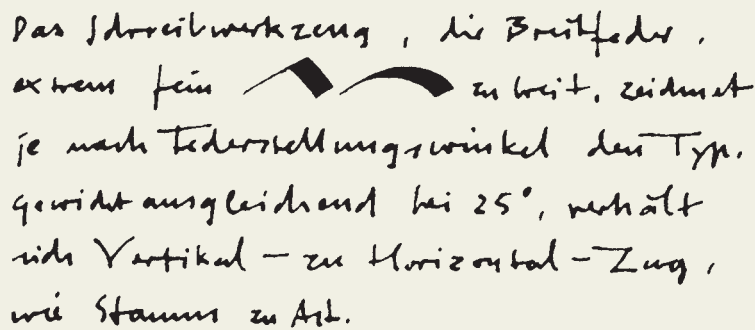 Das Schreibwerkzeug, die Breitfeder,
extrem fein zu breit, zeichnet
je nach Federstellungswinkel den Typ.
gewichtausgleichend bei 25°, verhält
sich Vertikal - zu Horizontal - Zug,
wie Stamm zu Ast.